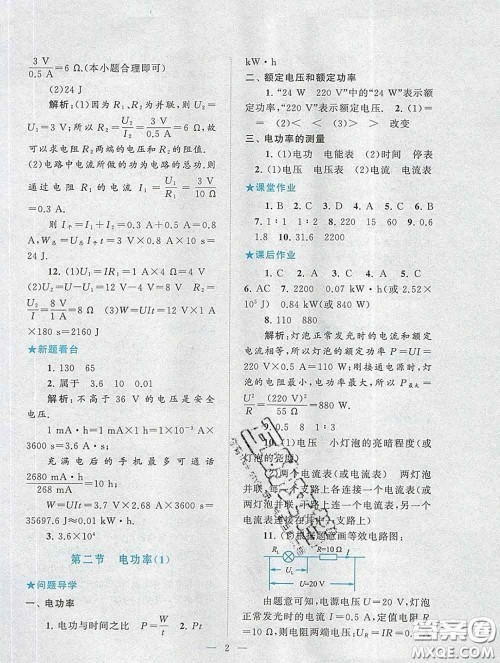 3 V/0.5 A=6 Ω.(本小题合理即可)
(2)24 J
解析:(1)因为 R₁、R₂ 并联,所以 U₂=
U₁=3 V;所以 R₂=U₂/I₂=3 V/0.5 A=6 Ω.故
可以求电阻 R₂ 两端的电压和 R₂ 的阻值.
(2)电路中电流所做的功为电路的总功,则
通过电阻 R₁ 的电流 I₁=U₁/R₁=3 V/10 Ω
=0.3 A.
I总=I₁+I₂=0.3 A+0.5 A=0.8 A.
W总=UI总t=3 V×0.8 A×10 s=
24 J
12. (1)U₁=IR₁=1 A×4 Ω=4 V
(2)U₂=U-U₁=12 V-4 V=8 V R₂=
U₂/I=8 V/1 A=8 Ω (3)W=UIt=12 V×1 A
×180 s=2160 J
★新题看台
1. 130 65
2. 属于 3.6 10 0.01
解析:不高于 36 V 的电压是安全
电压.
1 mA·h=1 mA×1 h=1×10⁻³ A×
3600 s=3.6 C
充满电后的手机最多可通话
2680 mA·h/268 mA=10 h
W=UIt=3.7 V×2.68 A×3600 s=
35697.6 J≈0.01 kW·h
3. 3.6×10⁴
第二节 电功率(1)
★问题导学
一、电功率
1. 电功与时间之比 P=W/t 2. Pt
kW·h
二、额定电压和额定功率
1. “24 W 220 V”中的“24 W”表示额
定功率,“220 V”表示额定电压. 2. (1)=
= (2)< < (3)> > 改变
三、电功率的测量
(1)电功 电能表 (2)时间 停表
(1)电压 电压表 (2)电流 电流表
★课堂作业
1. B 2. C 3. A 4. D 5. C 6. B
7. 1∶1 1∶2 8. 2200 15 60 9. 0.6
1.8 10. 31.6 2200
★课后作业
1. C 2. A 3. C 4. A 5. C
6. A 7. 2200 0.07 kW·h(或 2.52×
10⁵ J) 0.84 kW(或 840 W)
8. 110 880
解析:灯泡正常发光时的电流和额定
电流相等,所以灯泡的额定功率 P=UI=
=110 W;刚接通电源时,灯丝
的电阻最小,灯泡的功率最大,所以 P最大=
U²/R=(220 V)²/55 Ω=880 W.
9. 0.5 8 8∶1
10. (1)电压 小灯泡的亮暗程度(或
灯泡的亮度)
(2)两个电流表(或电流表) 两灯泡
并联,每个支路上各连接一个电流表(或灯
泡并联,在干路和一个支路上各连接一个电
11. (1)根据题意画等效电路图:
R₁ R=10 Ω
I
U_L
U=20 V
由题意可知,电源电压 U=20 V,灯泡
正常发光时的电流为 I,
2